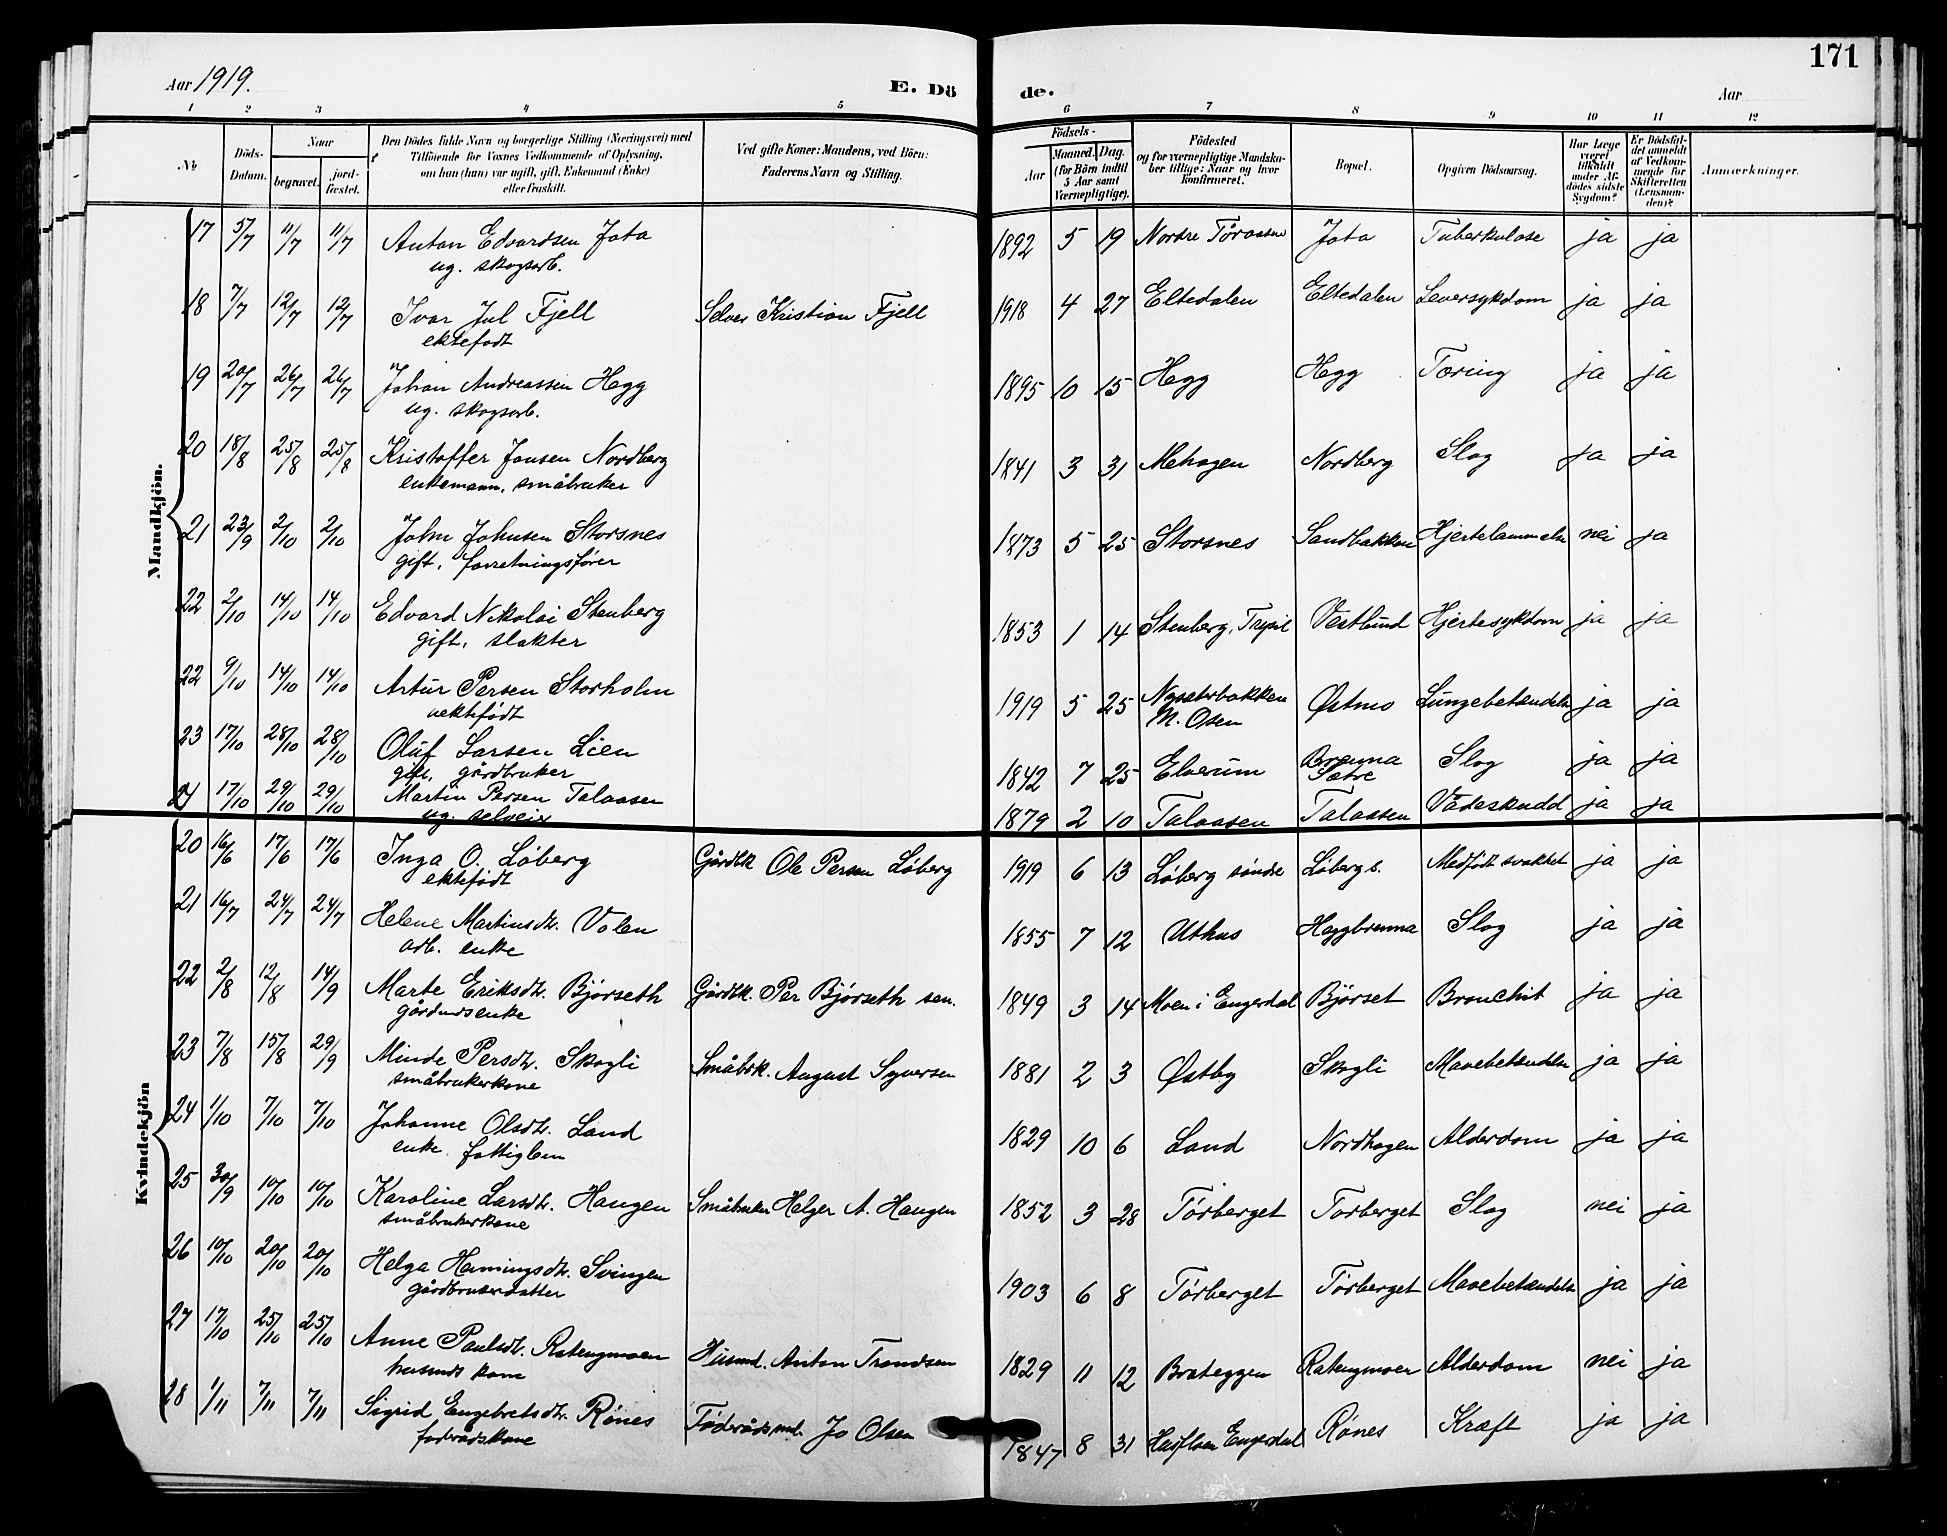 171
Aar 1919. E. Dö de. Aar
1 2 3 4 5 6 7 8 9 10 11 12
No Döds-Datum. Naar begravet. jord-fæstet. Den Dödes fulde Navn og borgerlige Stilling (Næringsvei) med Tilföiende for Voxnes Vedkommende af Oplysning, om han (hun) var ugift, gift, Enkemand (Enke) eller fraskilt. Ved gifte Koner: Mandens, ved Börn: Faderens Navn og Stilling. Födsels- Aar Maaned. Dag. (for Börn indtil 5 Aar samt Værnepligtige). Födested og for værnepligtige Mandskaber tillige: Naar og hvor konfirmeret. Bopæl. Opgiven Dödsaarsag. Har Læge været tilkaldt under Afdödes sidste Sygdom? Er Dödsfaldet anmeldt af Vedkommende for Skifteretten (Lensmanden)? Anmærkninger.
Mandkjön.
17 5/7 11/7 11/7 Anton Edvardsen Jota 1892 5 19 Nordre Töraasen Jota Tuberkulose ja ja
ug. skogsarb.
18 7/7 12/7 12/7 Ivar Jul Fjell Selvei Kristian Fjell 1918 4 27 Eltedalen Eltedalen Leversykdom ja ja
ektefødt
19 20/7 26/7 26/7 Johan Andreassen Hegg 1895 10 15 Hegg Hegg Tæring ja ja
ug. skogsarb.
20 18/8 25/8 25/8 Kristoffer Jonsen Nordberg 1841 3 31 Mehagen Nordberg Slag ja ja
enkemann, småbruker
21 23/9 2/10 2/10 John Johnsen Storsnes 1873 5 25 Storsnes Sandbakken Hjertelammelse nei ja
gift, forretningsfører
22 2/10 14/10 14/10 Edvard Nikolai Stenberg 1853 1 14 Stenberg, Trysil Vestlund Hjertesykdom ja ja
gift, slakter
22 9/10 14/10 14/10 Artur Persen Storholm 1919 5 25 Nysæterbakken Østmo Lungebetændelse ja ja
uektefödt M. Osen
23 17/10 28/10 28/10 Oluf Larsen Lien 1842 7 25 Elverum Brenna Sætre Slag ja ja
gift, gårdbruker
24 17/10 29/10 29/10 Martin Persen Talaasen 1879 2 10 Talaasen Talaasen Vådeskudd ja ja
ug. selveier
Kvindekjön
20 16/6 17/6 17/6 Inga O. Löberg Gårdbk Ole Persen Löberg 1919 6 13 Löberg söndre Löberg s. Medfödt svakhet ja ja
ektefödt
21 16/7 24/7 24/7 Helene Martinsdtr. Volen 1855 7 12 Uthus Heggbrenna Slag ja ja
arb. enke
22 2/8 12/8 14/9 Marte Eriksdtr. Björseth Gårdbk. Per Björseth sen. 1849 3 14 Moen i Engerdal Björset Bronchit ja ja
gårdmdsenke
23 7/8 15/8 29/9 Minde Persdtr. Skogli Småbrk. August Syversen 1881 2 3 Østby Skogli Mavebetændelse ja ja
småbrukerkone
24 1/10 7/10 7/10 Johanne Olsdtr. Land 1829 10 6 Land Nordhagen Alderdom ja ja
enke fattiglem
25 30/9 10/10 10/10 Karoline Larsdtr. Haugen Småbruker Helger A. Haugen 1852 3 28 Törberget Törberget Slag nei ja
småbrukerkone
26 10/10 20/10 20/10 Helga Hemingsdtr. Svingen 1903 6 8 Törberget Törberget Mavebetændelse ja ja
gårdbrukerdatter
27 17/10 25/10 25/10 Anne Paulsdtr. Ratengmoen Husmd. Anton Trondsen 1829 11 12 Brateggen Ratengmoen Alderdom nei ja
husmds kone
28 1/11 7/11 7/11 Sigrid Engebretsdtr. Rönes Föderådsmd. Jo Olsen 1847 8 31 Engerdal Rönes Kræft ja ja
föderådskone